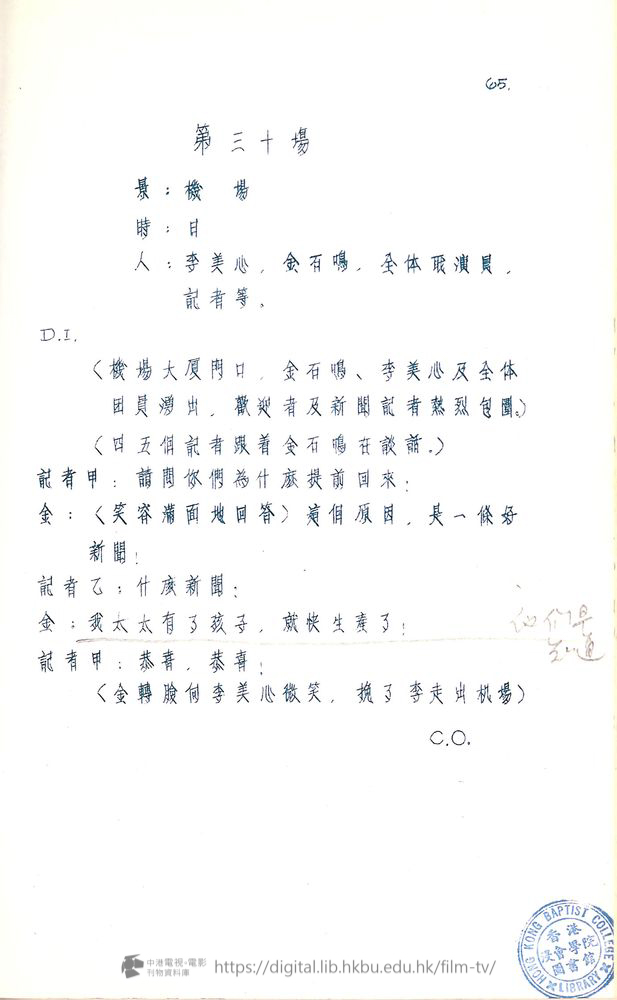 65.
第三十場
景：機場
時：日
人：李美心，金石鳴，全体職演員，
記者等。
D.I.
（機場大厦門口，金石鳴、李美心及全体
团員湧出，歡迎者及新聞記者熱烈包圍。）
（四五個記者跟着金石鳴在談話。）
記者甲：請問你們為什麽提前回來？
金：（笑容滿面地回答）這個原因，是一條好
新聞！
記者乙：什麽新聞？
金：我太太有了孩子，就快生產了！
他们早
知道
記者甲：恭喜，恭喜！
（金轉臉向李美心微笑，挽了李走出机場）
C.O.
HONG KONG BAPTIST COLLEGE
香港
浸會學院
圖書館
LIBRARY
中港電視·電影
刊物資料庫
https://digital.lib.hkbu.edu.hk/film-tv/